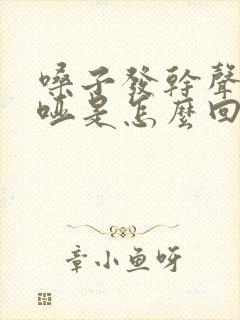 嗓子發幹聲
啞是怎麼回
章小魚呀